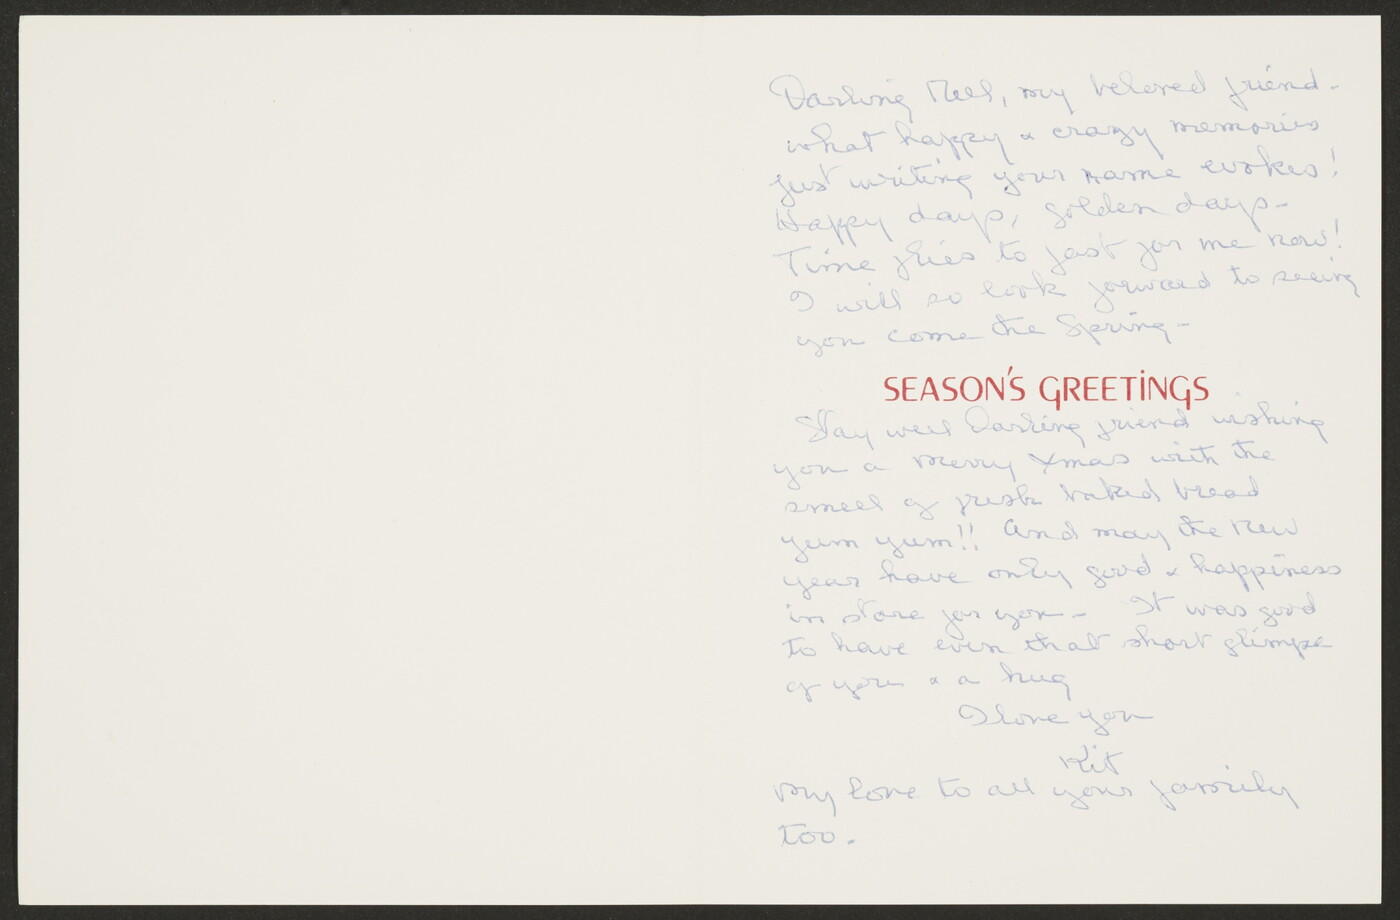 Darling Mell, my beloved friend -
what happy & crazy memories
just writing your name evokes!
Happy days, golden days -
Time flies to fast for me now!
I will so look forward to seeing
you come the Spring -
SEASON'S GREETINGS
Stay well Darling friend wishing
you a merry Xmas with the
smell of fresh baked bread
yum yum!! And may the New
year have only good & happiness
in store for you - It was good
to have even that short glimpse
of you & a hug
I love you
Kit
My love to all your family
too.